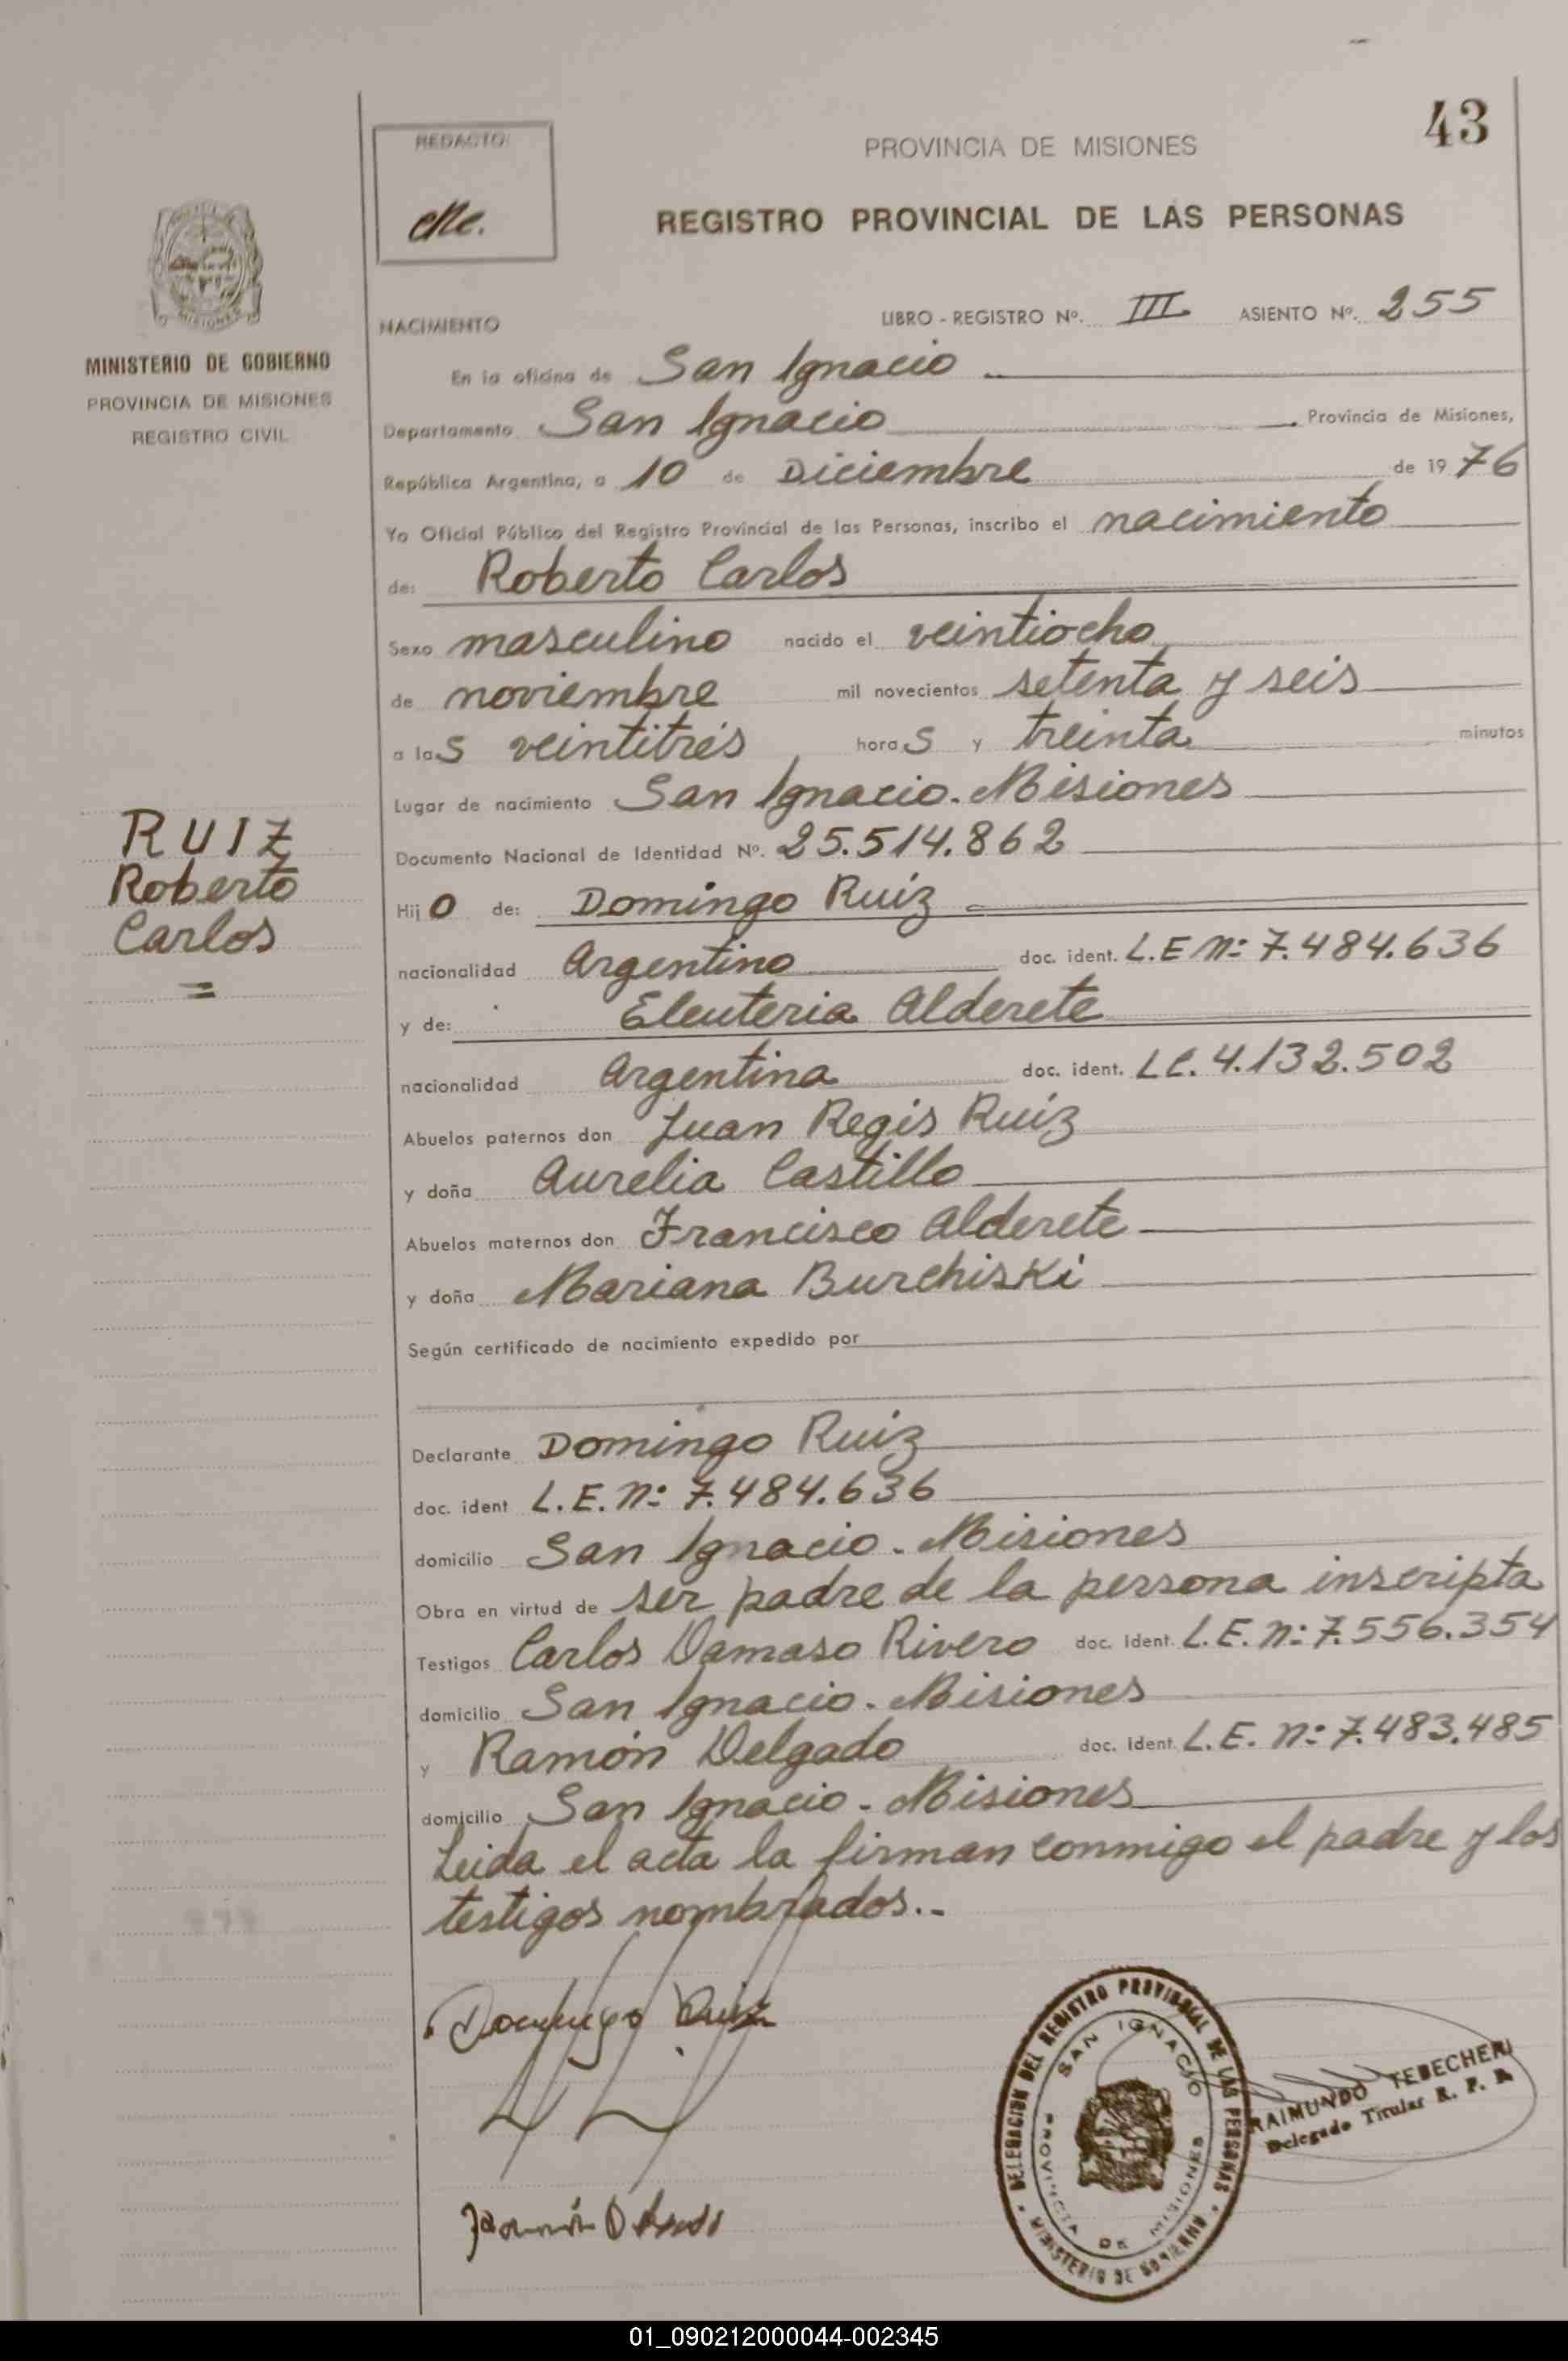 43
REDACTO:
PROVINCIA DE MISIONES
REGISTRO PROVINCIAL DE LAS PERSONAS
MISIONES
MINISTERIO DE GOBIERNO
PROVINCIA DE MISIONES
REGISTRO CIVIL
RUIZ
Roberto
Carlos
NACIMIENTO
LIBRO - REGISTRO Nº. III ASIENTO Nº. 255
En la oficina de San Ignacio
Departamento San Ignacio Provincia de Misiones,
República Argentina, a 10 de Diciembre de 1976
Yo Oficial Público del Registro Provincial de las Personas, inscribo el nacimiento
de: Roberto Carlos
Sexo masculino nacido el veintiocho
de noviembre mil novecientos setenta y seis
a las veintitrés horas y treinta minutos
Lugar de nacimiento San Ignacio. Misiones
Documento Nacional de Identidad Nº. 25.514.862
Hijo de: Domingo Ruiz
nacionalidad Argentino doc. ident. L.E Nº: 7.484.636
y de: Eleuteria Alderete
nacionalidad Argentina doc. ident. LC. 4.132.502
Abuelos paternos don Juan Regis Ruiz
y doña Aurelia Castillo
Abuelos maternos don Francisco Alderete
y doña Mariana Burchiski
Según certificado de nacimiento expedido por
Declarante Domingo Ruiz
doc. ident L.E. Nº: 7.484.636
domicilio San Ignacio. Misiones
Obra en virtud de ser padre de la persona inscripta
Testigos Carlos Damaso Rivero doc. Ident. L.E. Nº: 7.556.354
domicilio San Ignacio. Misiones
y Ramón Delgado doc. Ident. L.E. Nº: 7.483.485
domicilio San Ignacio - Misiones
Leida el acta la firman conmigo el padre y los
testigos nombrados..-
Domingo Ruiz
DELEGACION DEL REGISTRO PROVINCIAL DE LAS PERSONAS
SAN IGNACIO
PROVINCIA DE MISIONES
MINISTERIO DE GOBIERNO
RAIMUNDO TEBECHERI
Delegado Titular R. P. P.
01_090212000044-002345